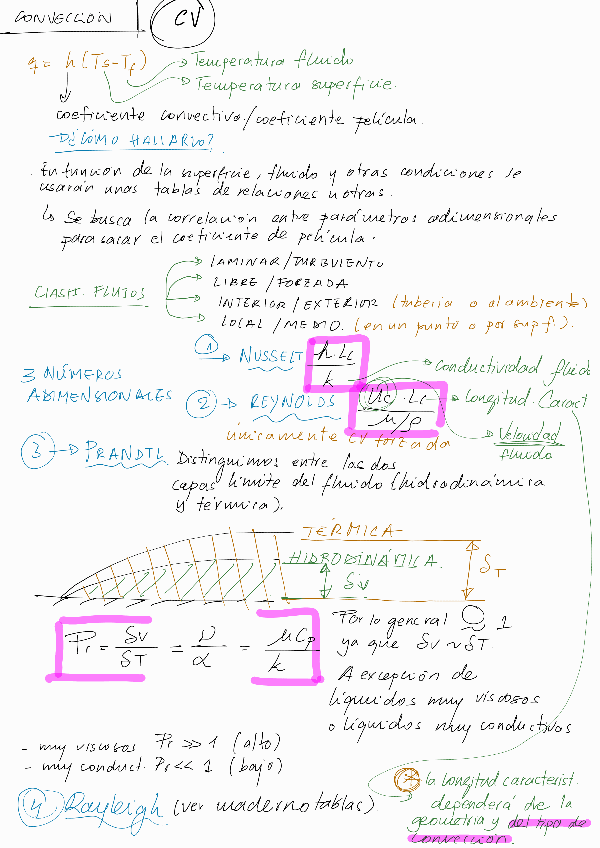 CONVECCIÓN CV
q = h (Ts - Tf) → Temperatura fluido
→ Temperatura superficie.
coeficiente convectivo/coeficiente película.
→ ¿CÓMO HALLARLO?
. En función de la superficie, fluido y otras condiciones se
usarán unas tablas de relaciones u otras.
↳ Se busca la correlación entre parámetros adimensionales
para sacar el coeficiente de película.
CLASIF. FLUJOS
LAMINAR / TURBULENTO
LIBRE / FORZADA
INTERIOR / EXTERIOR (tubería o al ambiente)
LOCAL / MEDIO. (en un punto o por supf.).
3 NÚMEROS
ADIMENSIONALES
1 → NUSSELT h·Lc / k → conductividad fluido
2 → REYNOLDS Uc · Lc / μ/ρ → Longitud. Caract
únicamente CV forzada
→ Velocidad
fluido
3 → PRANDTL Distinguimos entre las dos
capas límite del fluido (hidrodinámica
y térmica).
TÉRMICA
HIDRODINÁMICA.
δv
δT
Pr = δv / δT = ν / α = μCp / k
Por lo general 1
ya que δv ~ δT.
A excepción de
líquidos muy viscosos
o líquidos muy conductivos
- muy viscosos Pr >> 1 (alto)
- muy conduct. Pr << 1 (bajo)
4 Rayleigh (ver maderno tablas)
* la longitud característ.
dependerá de la
geometría y del tipo de
convección.